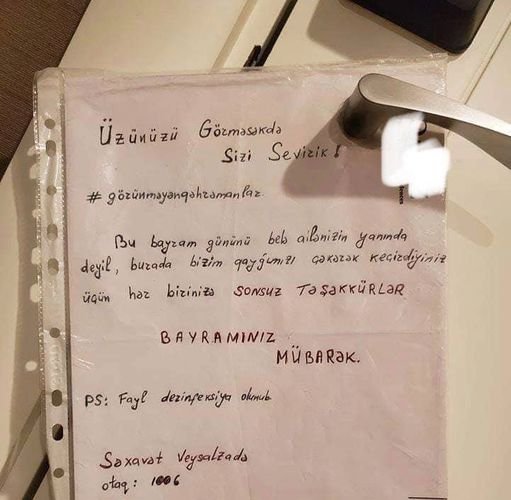 Üzünüzü Görməsəkdə
Sizi Sevirik!
#görünməyənqəhrəmanlar
Bu bayram gününü belə ailənizin yanında
deyil, burada bizim qayğımızı çəkərək keçirdiyiniz
üçün hər birinizə SONSUZ TƏŞƏKKÜRLƏR
BAYRAMINIZ
MÜBARƏK.
PS: Fayl dezinfeksiya olunub
Səxavət Veysəlzadə
otaq: 1006